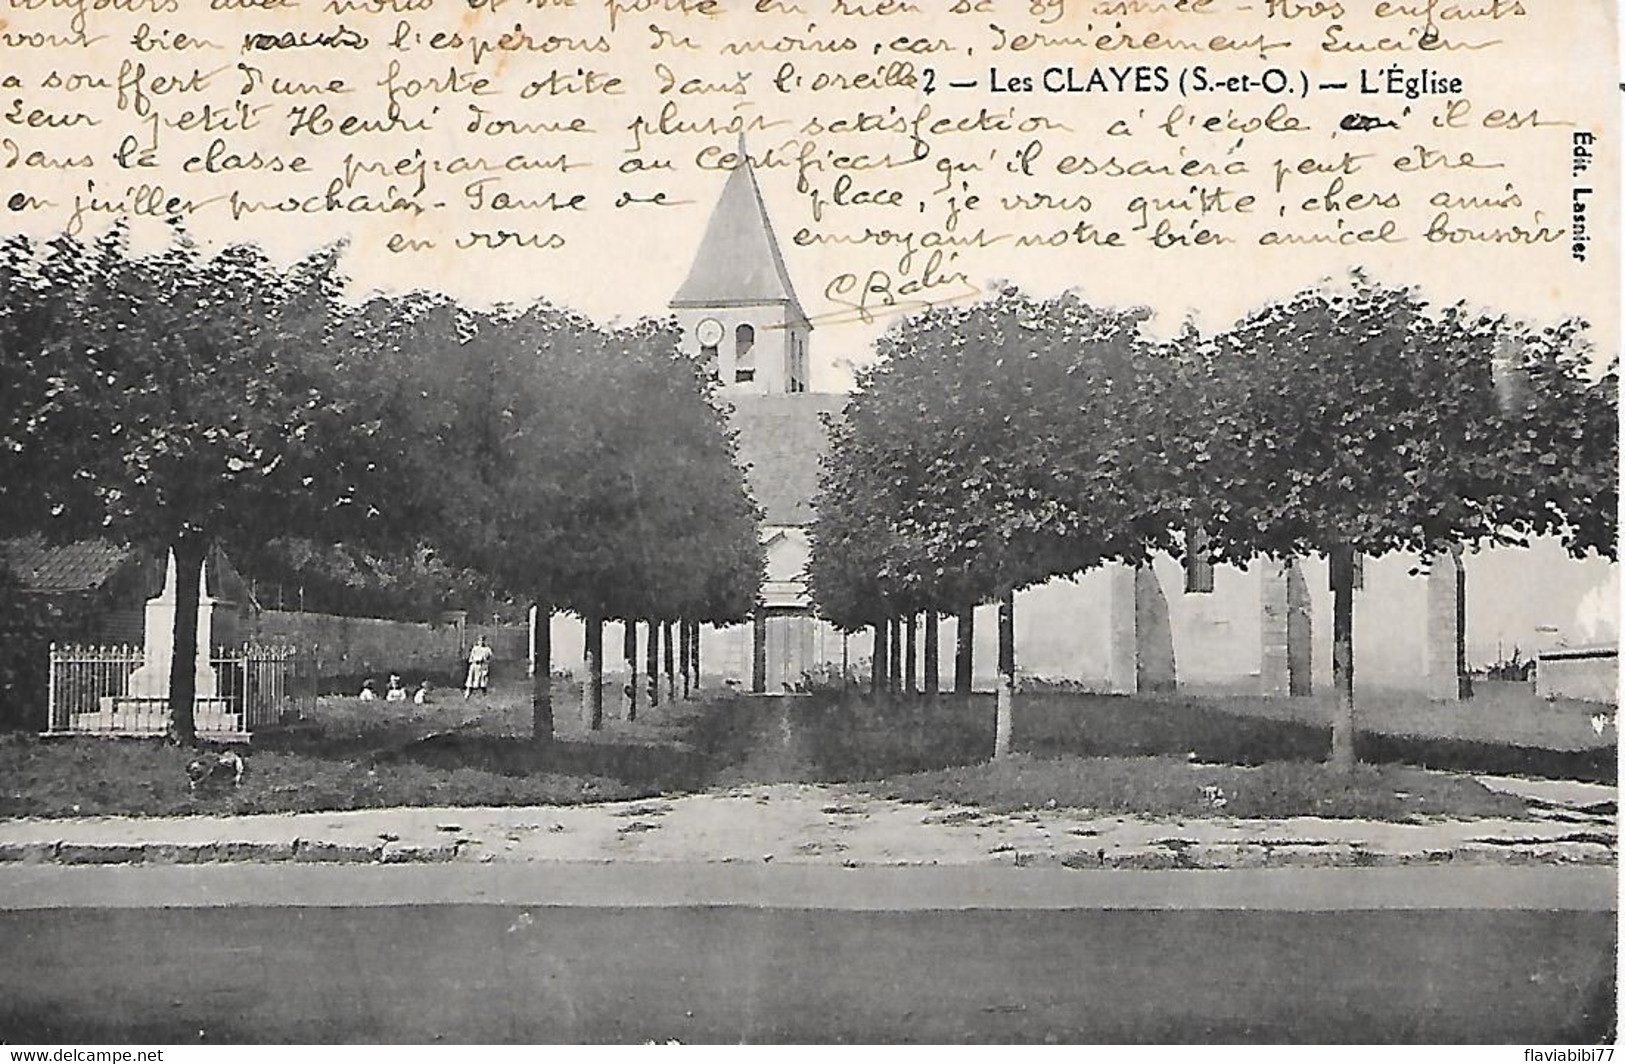 toujours avec nous et ne porte en rien sa 89 année - Nos enfants
vont bien nous l'espérons du moins, car, dernièrement Lucien
a souffert d'une forte otite dans l'oreille
2 — Les CLAYES (S.-et-O.) — L'Église
Leur petit Henri donne plutôt satisfaction à l'école, il est
dans la classe préparant au Certificat qu'il essaiera peut être
en juillet prochain - Faute de place, je vous quitte, chers amis
en vous envoyant notre bien amical bonsoir
Édit. Lasnier
www.delcampe.net
flaviabibi77